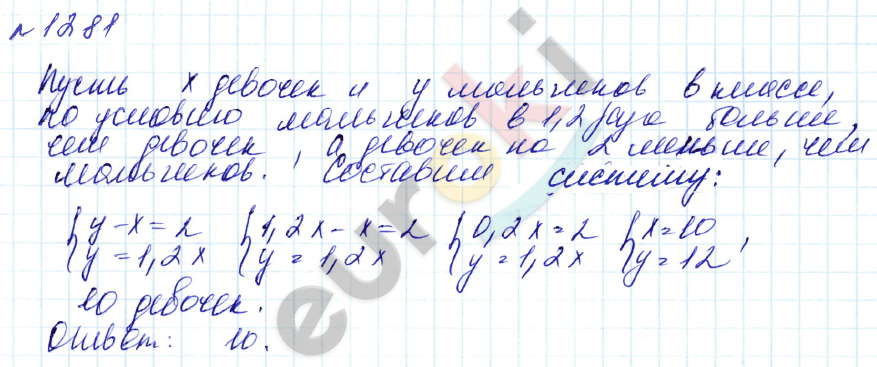 № 1281
Пусть x девочек и y мальчиков в классе,
по условию мальчиков в 1,2 раза больше,
чем девочек, а девочек на 2 меньше, чем
мальчиков. Составим систему:
{y-x=2 {1,2x-x=2 {0,2x=2 {x=10
{y=1,2x {y=1,2x {y=1,2x {y=12,
10 девочек.
Ответ: 10.
euroki